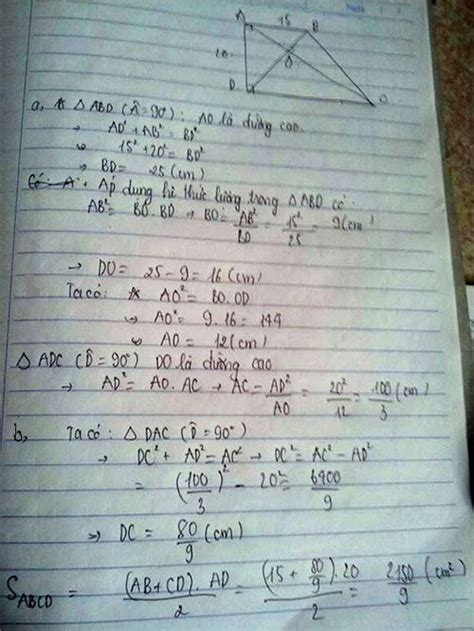 A 15 B
20
O
D C
a, * △ ABD (Â = 90°) : AO là đường cao.
→ AD² + AB² = BD²
⇔ 15² + 20² = BD²
→ BD = 25 (cm)
Có: A + Áp dụng hệ thức lượng trong △ ABD có:
AB² = BO.BD → BO = AB²/BD = 15²/25 = 9 (cm)
→ DO = 25 - 9 = 16 (cm)
Ta có: * AO² = BO.OD
⇔ AO² = 9.16 = 144
⇔ AO = 12 (cm)
△ ADC (D̂ = 90°) DO là đường cao
→ AD² = AO.AC → AC = AD²/AO = 20²/12 = 100/3 (cm)
b, Ta có: △ DAC (D̂ = 90°)
→ DC² + AD² = AC² → DC² = AC² - AD²
= (100/3)² - 20² = 6400/9
⇒ DC = 80/9 (cm)
S_ABCD = (AB + CD).AD/2 = (15 + 80/9).20/2 = 2150/9 (cm²)